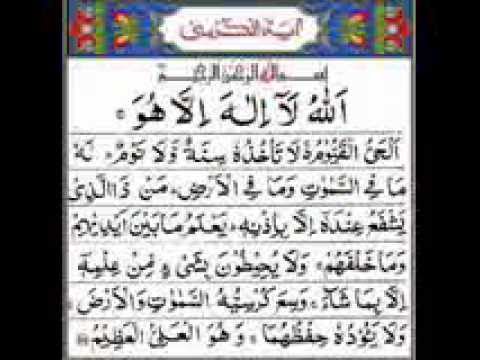 آية الكرسى
بسم الله الرحمن الرحيم
اَللّٰهُ لَآ اِلٰهَ اِلَّا هُوَ ۚ
اَلْحَىُّ الْقَيُّوْمُ ۚ لَا تَاْخُذُهٗ سِنَةٌ وَّلَا نَوْمٌ ؕ لَهٗ
مَا فِى السَّمٰوٰتِ وَمَا فِى الْاَرْضِ ؕ مَنْ ذَا الَّذِىْ
يَشْفَعُ عِنْدَهٗٓ اِلَّا بِاِذْنِهٖ ؕ يَعْلَمُ مَا بَيْنَ اَيْدِيْهِمْ
وَمَا خَلْفَهُمْ ۚ وَلَا يُحِيْطُوْنَ بِشَىْءٍ مِّنْ عِلْمِهٖٓ
اِلَّا بِمَا شَآءَ ۚ وَسِعَ كُرْسِيُّهُ السَّمٰوٰتِ وَالْاَرْضَ ۚ
وَلَا يَئُوْدُهٗ حِفْظُهُمَا ۚ وَهُوَ الْعَلِىُّ الْعَظِيْمُ